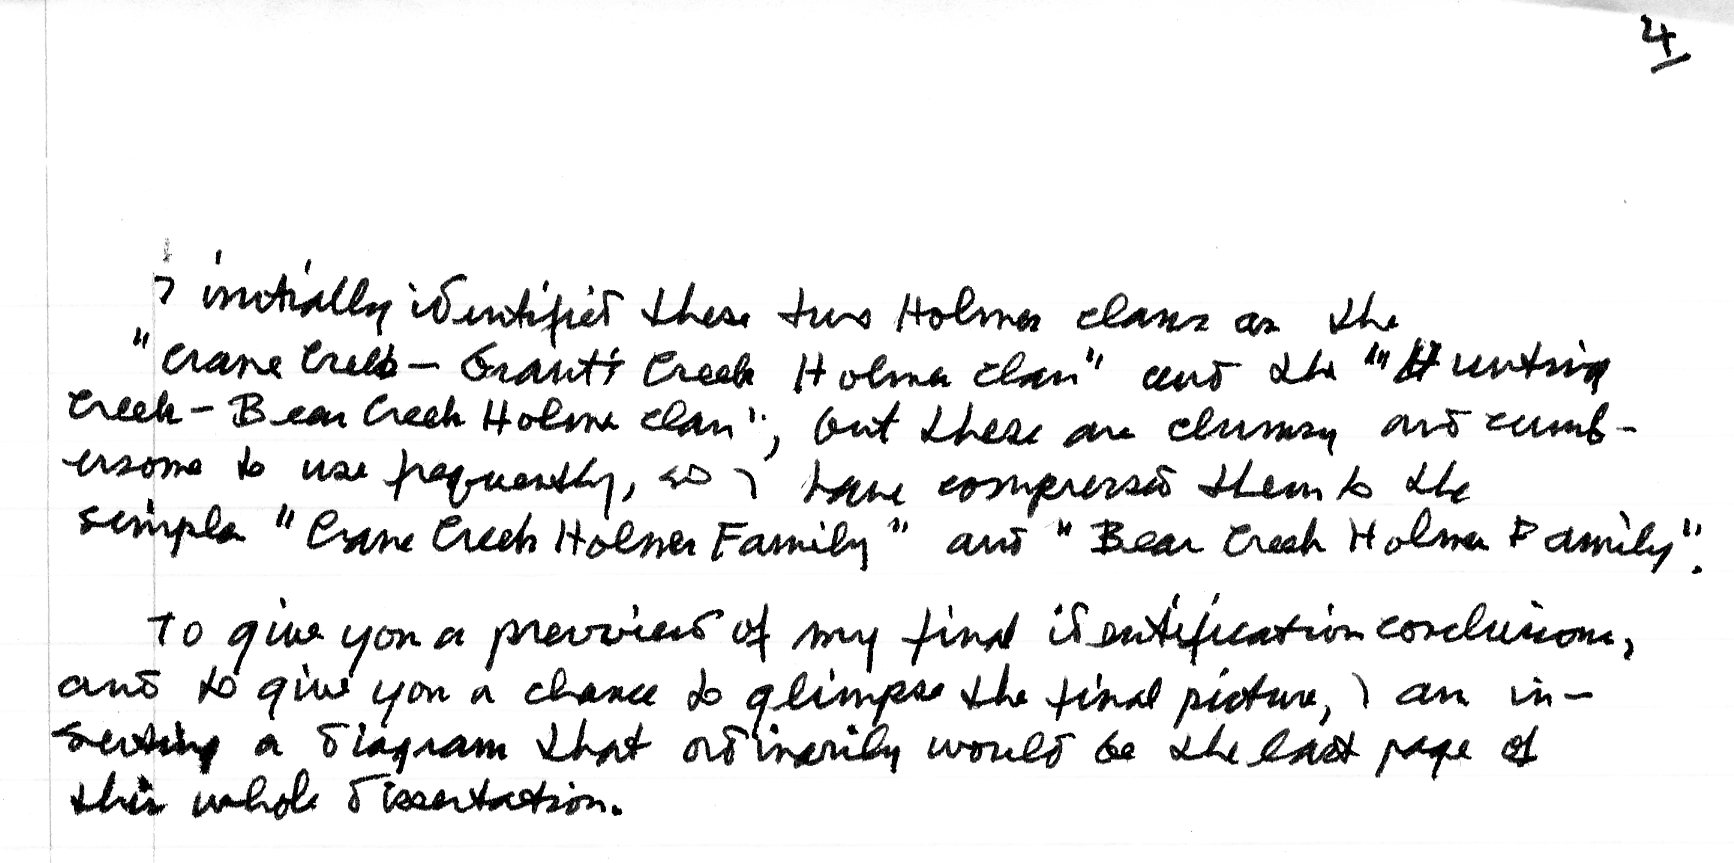 4
I initially identified these two Holmes clans as the
"Crane Creek - Grant's Creek Holmes clan" and the "Hunting
Creek - Bear Creek Holmes clan", but these are clumsy and cumb-
ersome to use frequently, so I have compressed them to the
simple "Crane Creek Holmes Family" and "Bear Creek Holmes Family".
To give you a preview of my final identification conclusions,
and to give you a chance to glimpse the final picture, I am in-
serting a diagram that ordinarily would be the last page of
this whole dissertation.